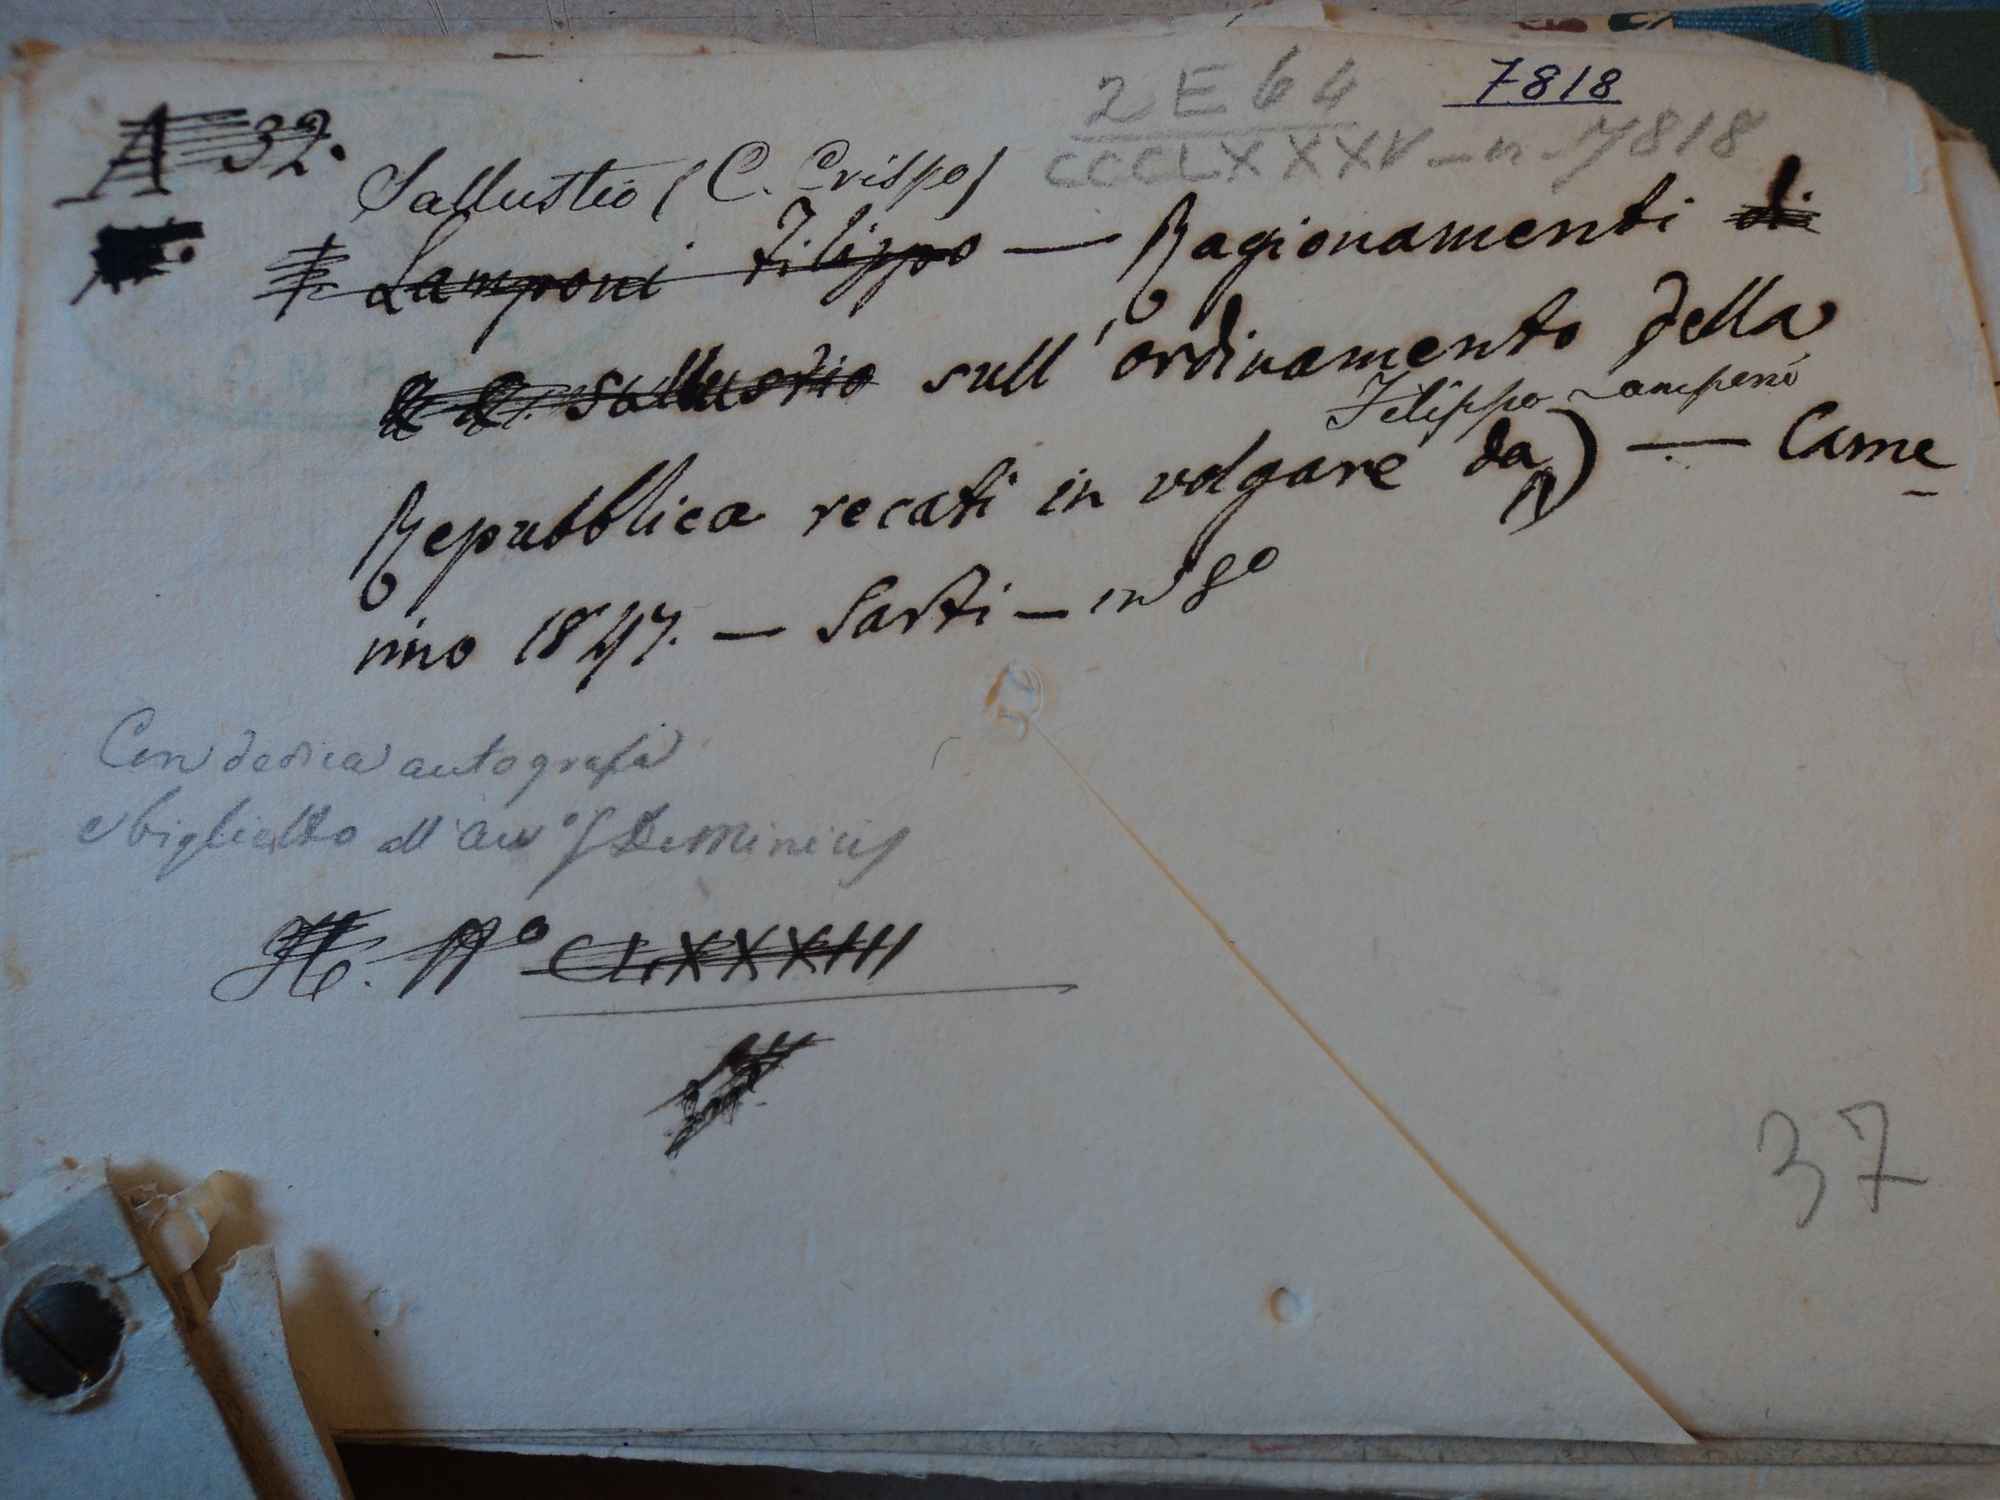 7818
2 E 64
CCCLXXXV - n. 7818
A 32.
Sallustio (C. Crispo)
Lamponi Filippo — Ragionamenti di
C. Sallustio sull'ordinamento della
Filippo Lamponi
Repubblica recati in volgare da) — Came
rino 1847. — Sarti — in 8º
Con dedica autografa
e biglietto all'avvº De Minicis
H. Nº CLXXXIII
37